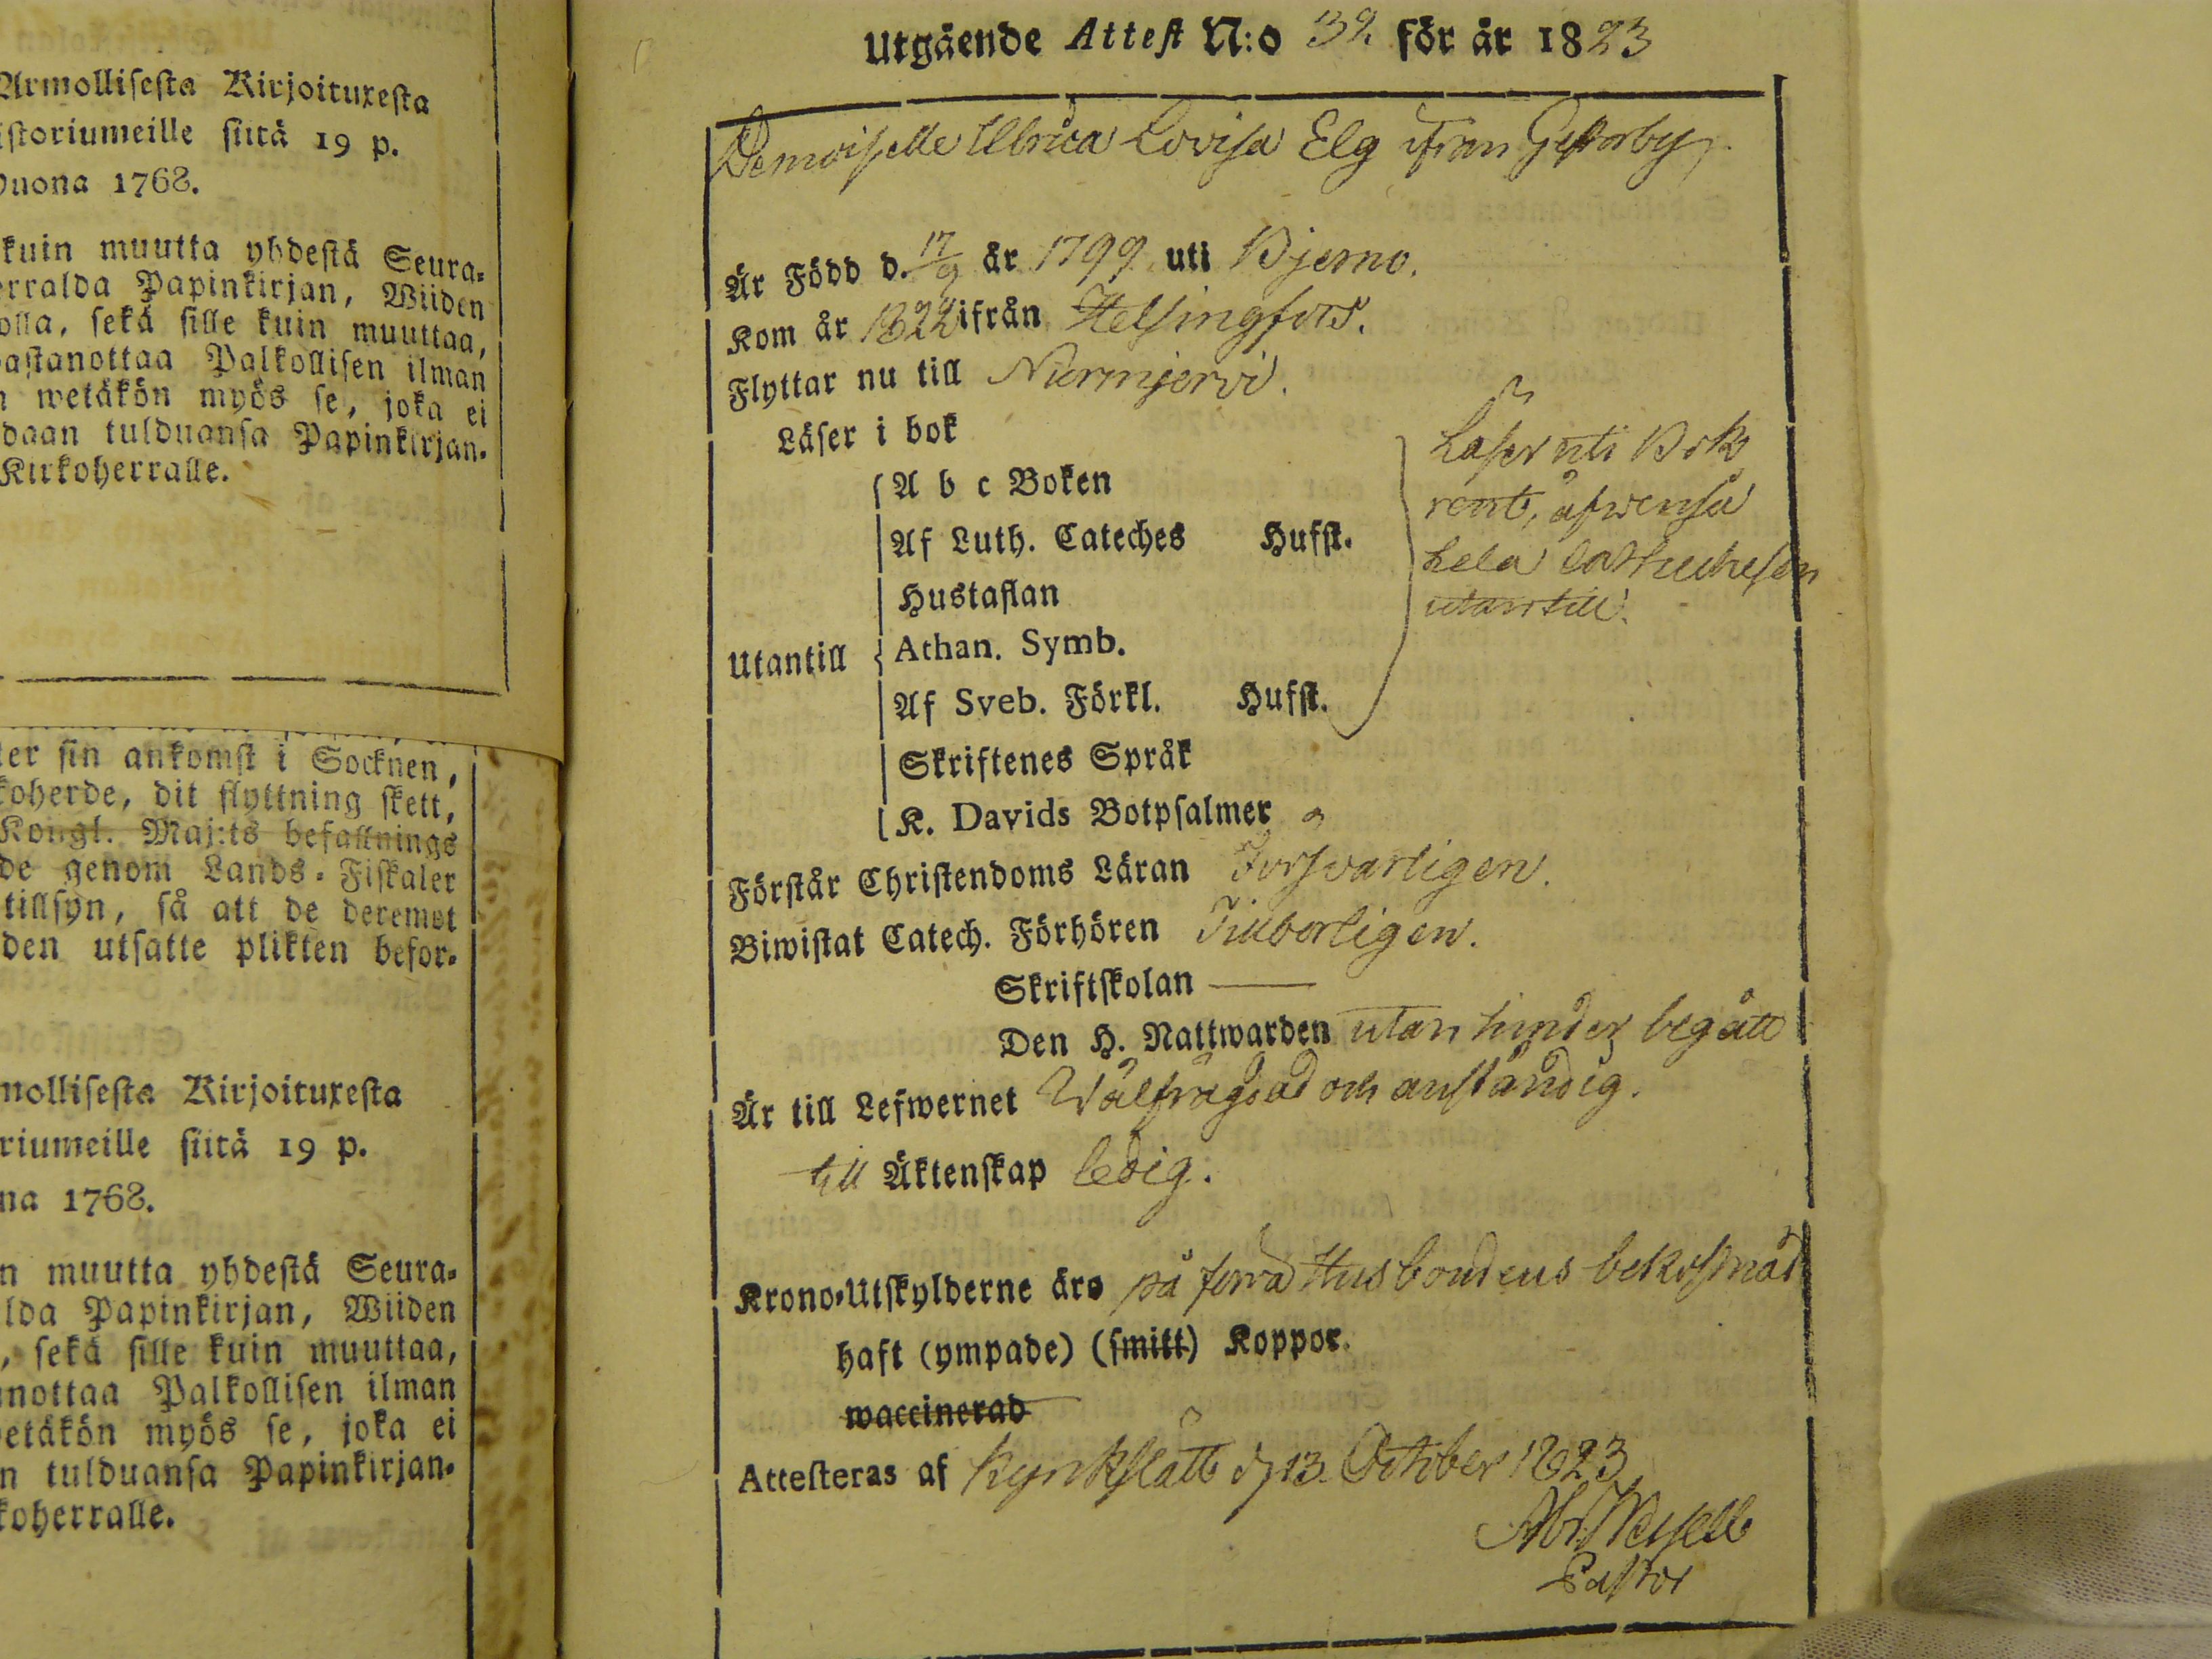 Armollisesta Kirjoituxesta
istoriumeille siitä 19 p.
uona 1768.
kuin muutta yhdestä Seura-
erralda Papinkirjan, Wiiden
olla, sekä sille kuin muuttaa,
astanottaa Palkollisen ilman
wetäkön myös se, joka ei
daan tulduansa Papinkirjan-
Kirkoherralle.
ter sin ankomst i Socknen,
koherde, dit flyttning skett,
Kongl. Maj:ts befallnings
de genom Lands-Fiskaler
tillsyn, så att de deremot
den utsatte plikten befor-
mollisesta Kirjoituxesta
riumeille siitä 19 p.
na 1768.
n muutta yhdestä Seura-
lda Papinkirjan, Wiiden
, sekä sille kuin muuttaa,
nottaa Palkollisen ilman
etäkön myös se, joka ei
n tulduansa Papinkirjan-
koherralle.
Utgående Attest N:o 32 för år 1823
Demoiselle Ulrica Lovisa Elg ifrån Gesterby.
Är Född d. 17/9 år 1799 uti Bjerno.
Kom år 1822 ifrån Helsingfors.
Flyttar nu till Nurmjervi.
Läser i bok
A b c Boken
Af Luth. Cateches Hufst.
Hustaflan
Utantill Athan. Symb.
Af Sveb. Förkl. Hufst.
Skriftenes Språk
K. Davids Botpsalmer
Läser uti Bok
rent, äfwenså
hela Cathechesen
utantill.
Förstår Christendoms Läran Försvarligen.
Biwistat Catech. Förhören Tillbörligen.
Skriftskolan —
Den H. Nattwarden utan hinder begått
Är till Lefwernet Wälfrägdad och anständig.
till Äktenskap ledig.
Krono-Utskylderne äro på förra Husbondens bekostnad
haft (ympade) (smitt) Koppor.
waccinerad
Attesteras af Kyrkslätt d 13 October 1823
Pastor